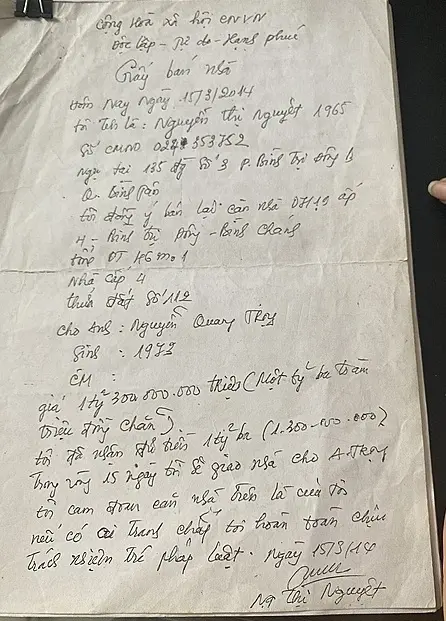 Cộng Hoà xã hội CNVN
Độc lập - Tự do - Hạnh phúc
Giấy bán nhà
Hôm Nay Ngày 15/3/2014
tôi tên là: Nguyễn thị Nguyệt 1965
Số CMND 353752
ngụ tại 135 đg số 3 P. Bình Trị Đông B
Q. Bình Tân
tôi đồng ý bán lại căn nhà D7/19 ấp
4 - Bình Chánh
tổng DT 46 m
Nhà cấp 4
thửa đất số 112
cho Anh: Nguyễn Quang Trọng
Sinh: 1972
CM:
giá 1 tỷ 300.000.000 triệu (Một tỷ ba trăm
triệu đồng chẵn).
tôi đã nhận đủ tiền 1 tỷ ba (1.300.000.000)
trong vòng 15 ngày tôi sẽ giao nhà cho A. Trọng
tôi cam đoan căn nhà trên là của tôi
nếu có ai tranh chấp tôi hoàn toàn chịu
trách nhiệm trc pháp luật. Ngày 15/3/14
Ng thị Nguyệt